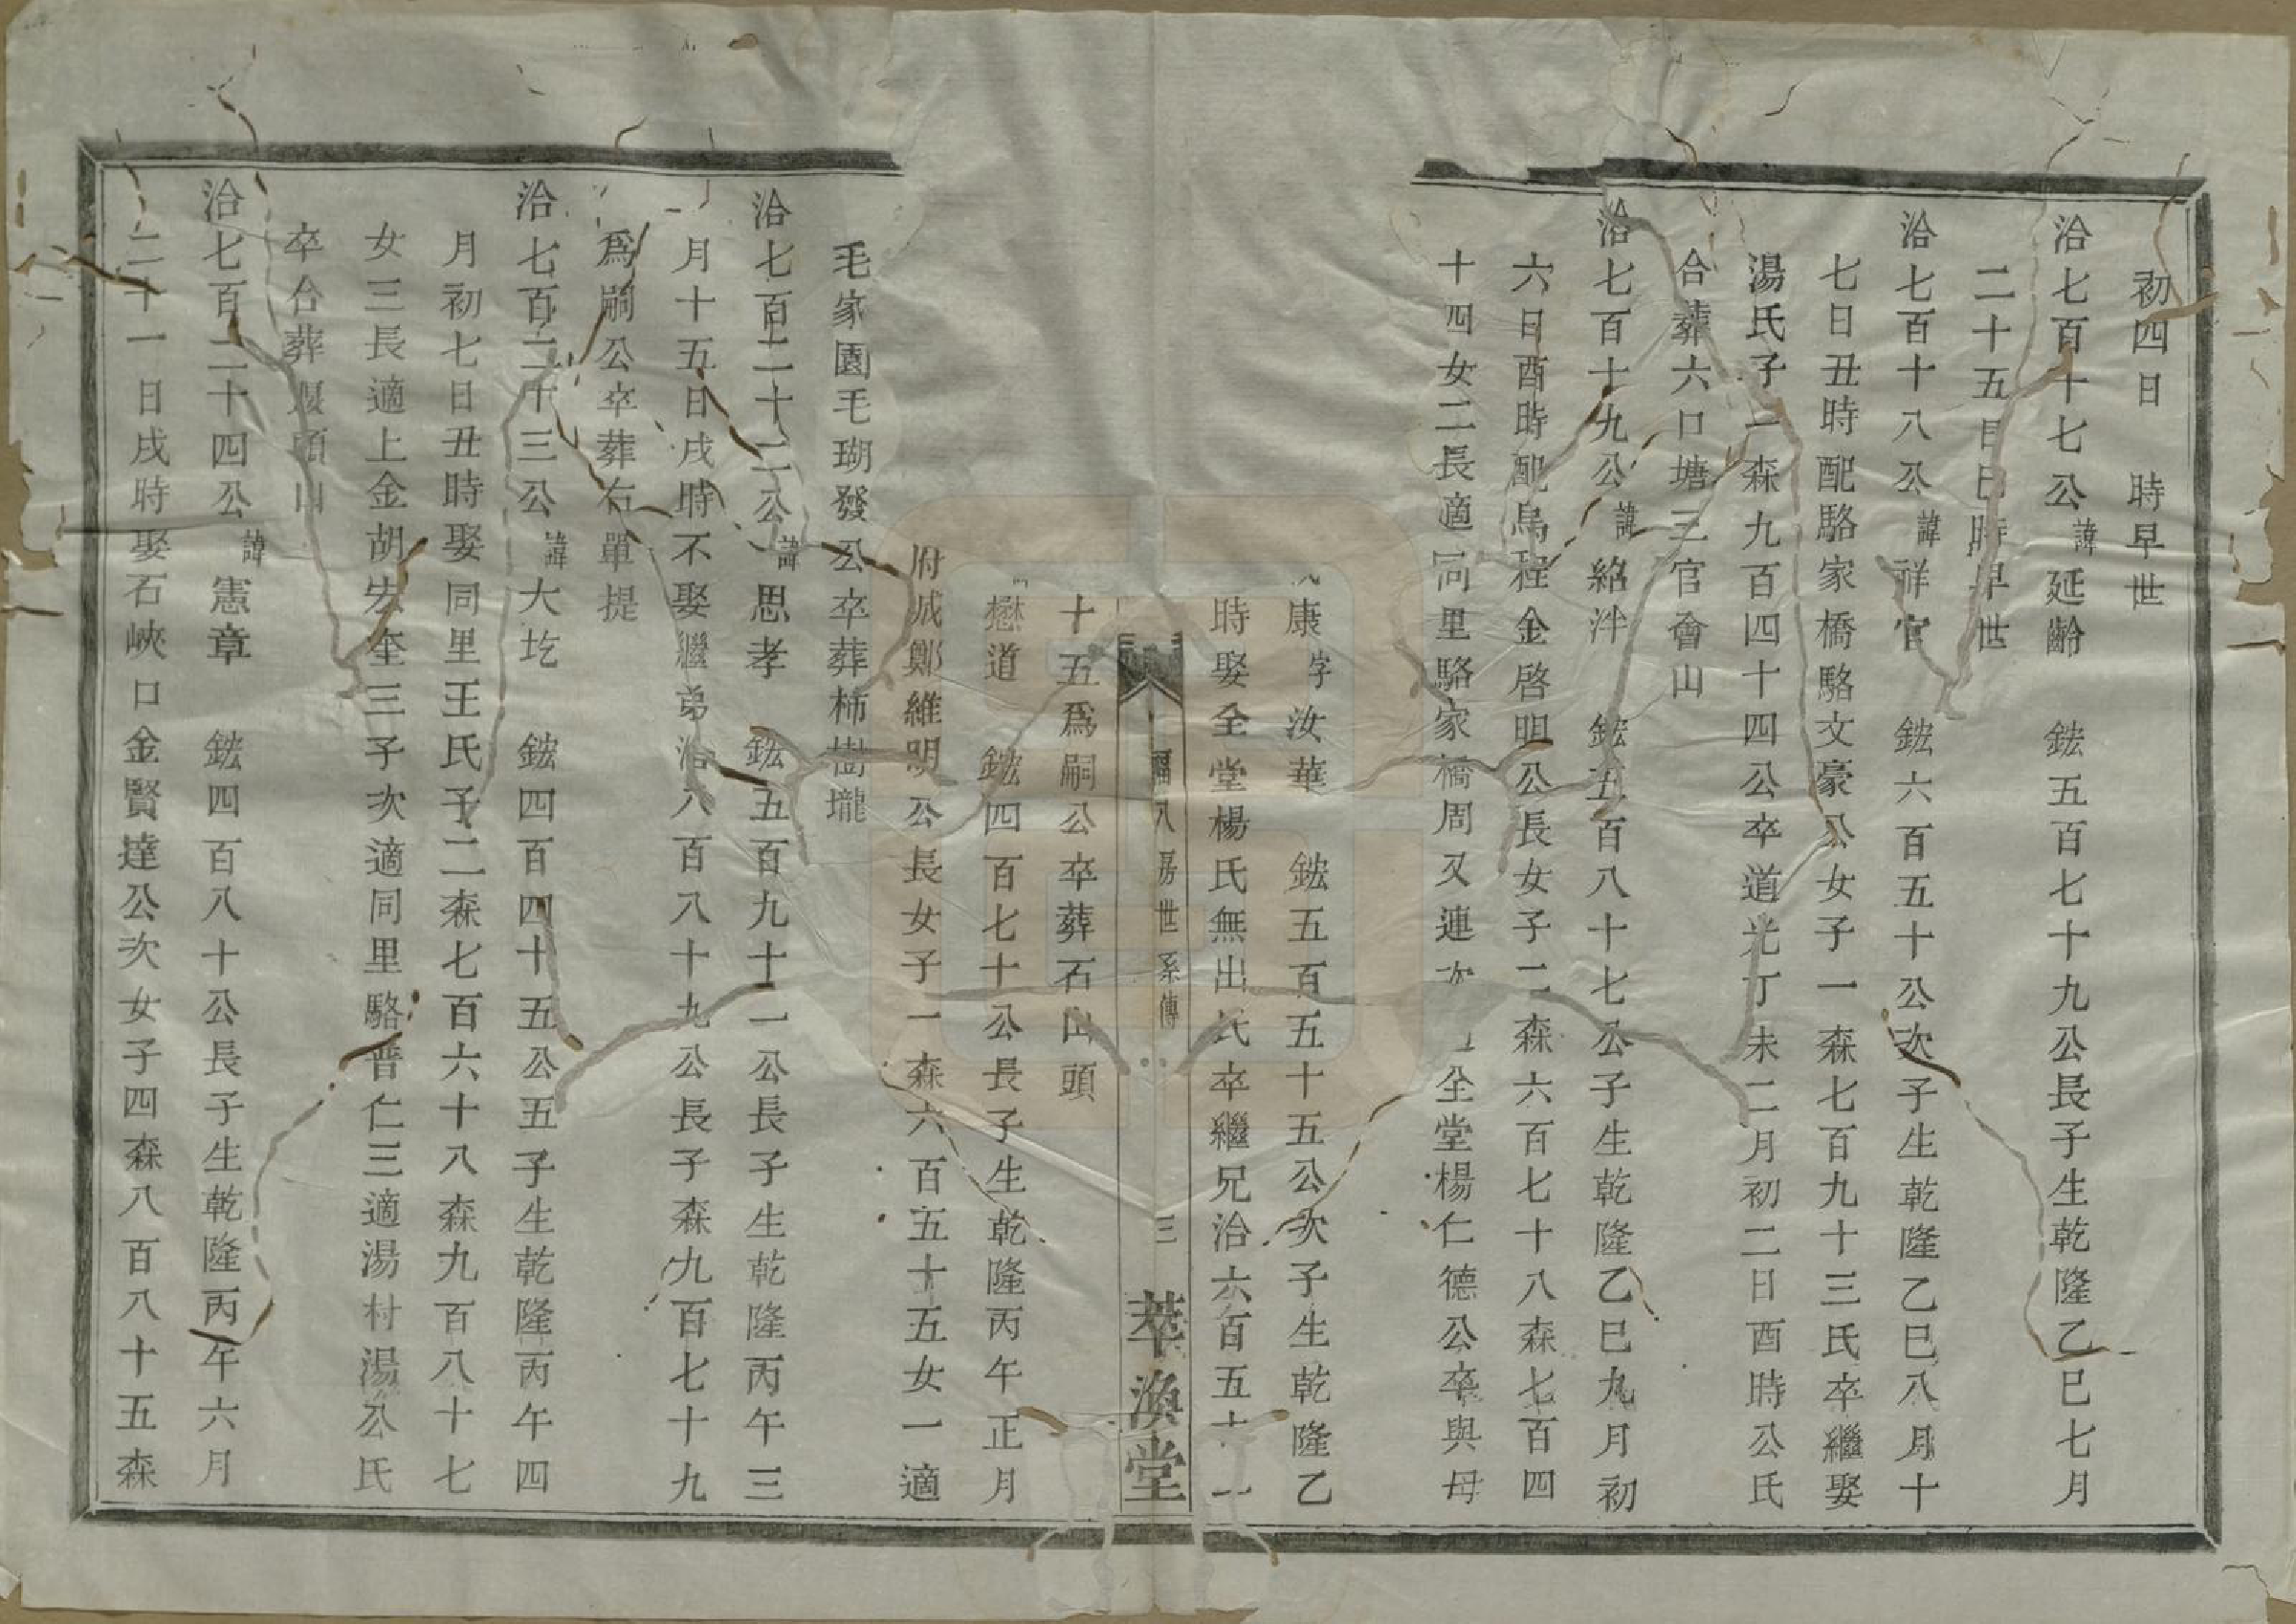 初四日 時早世
洽七百十七公諱延齡 鋐五百七十九公長子生乾隆乙巳七月
二十五日巳時早世
洽七百十八公諱祥官 鋐六百五十公次子生乾隆乙巳八月十
七日丑時配駱家橋駱文豪公女子一森七百九十三氏卒繼娶
湯氏子一森九百四十四公卒道光丁未二月初二日酉時公氏
合葬六口塘三官會山
洽七百十九公諱絡泮 鋐五百八十七公子生乾隆乙巳九月初
六日酉時配烏程金啓明公長女子二森六百七十八森七百四
十四女二長適同里駱家橋周又連次 全堂楊仁德公卒與母
康字汝華 鋐五百五十五公次子生乾隆乙
時娶全堂楊氏無出氏卒繼兄洽六百五十一
福八房世系傳 三 萃渙堂
十五爲嗣公卒葬石山頭
懋道 鋐四百七十公長子生乾隆丙午正月
附城鄭維明公長女子一森六百五十五女一適
毛家園毛瑚發公卒葬柿樹壠
洽七百二十二公諱思孝 鋐五百九十一公長子生乾隆丙午三
月十五日戌時不娶繼弟洽八百八十九公長子森九百七十九
爲嗣公卒葬右單提
洽七百二十三公諱大圪 鋐四百四十五公五子生乾隆丙午四
月初七日丑時娶同里王氏子二森七百六十八森九百八十七
女三長適上金胡宏奎三子次適同里駱普仁三適湯村湯公氏
卒合葬堰頭山
洽七百二十四公諱憲章 鋐四百八十公長子生乾隆丙午六月
二十一日戌時娶石峽口金賢達公次女子四森八百八十五森